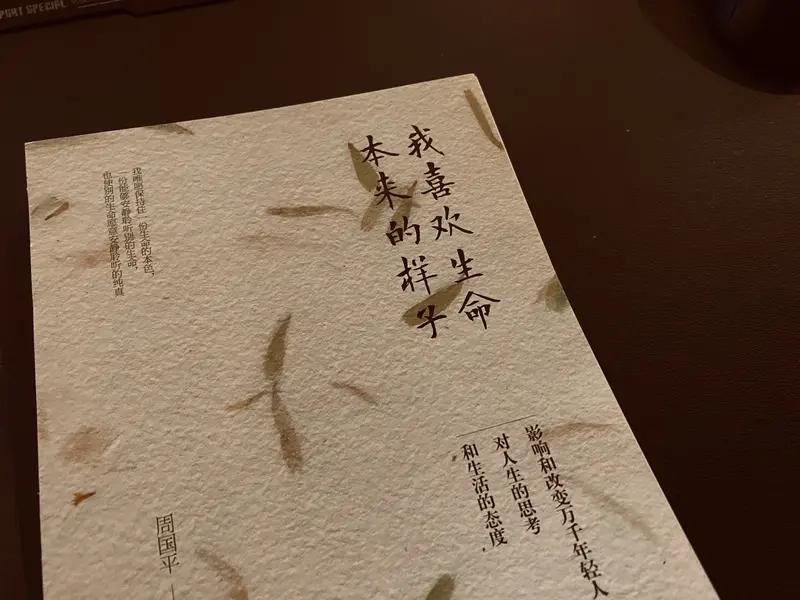 PORT SPECIAL
我喜欢生命
本来的样子
我唯愿保持住一份生命的本色，
一份能够安静聆听别的生命，
也使别的生命愿意安静聆听的纯真
影响和改变万千年轻人
对人生的思考
和生活的态度
周国平